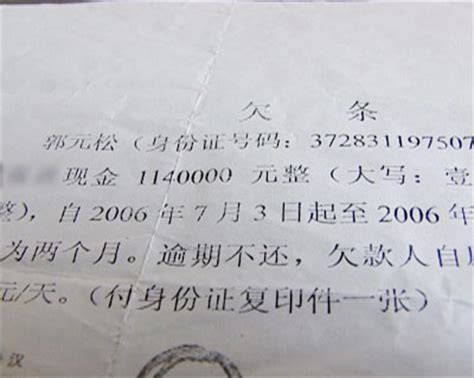 欠 条
郭元松（身份证号码：372831197507
现金 1140000 元整（大写：壹
整），自 2006 年 7 月 3 日起至 2006 年
为两个月。逾期不还，欠款人自
元/天。（付身份证复印件一张）
汉